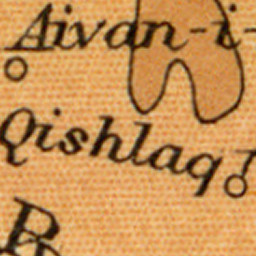 Aivan-i-
Qishlaq